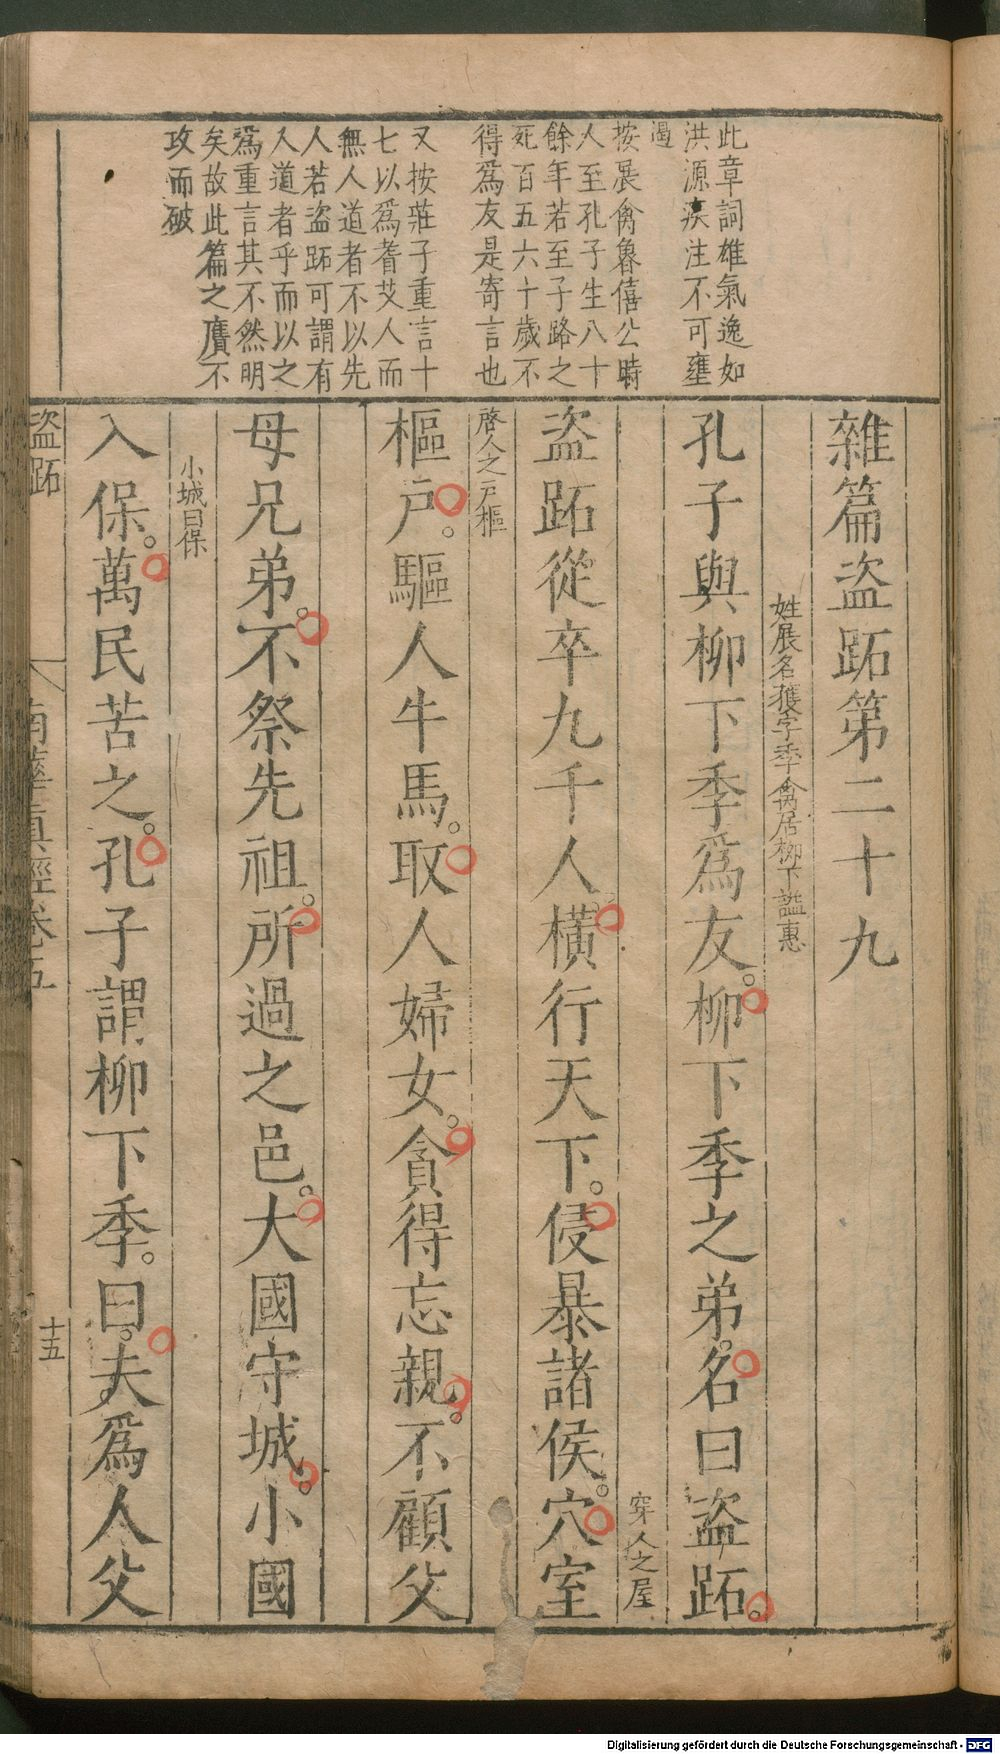 此章詞雄氣逸如
洪源疾注不可壅
遏
按展禽魯僖公時
人至孔子生八十
餘年若至子路之
死百五六十歲不
得爲友是寄言也
又按莊子重言十
七以爲耆艾人而
無人道者不以先
人若盜跖可謂有
人道者乎而以之
爲重言其不然明
矣故此篇之贋不
攻而破
雜篇盜跖第二十九
姓展名獲字季禽居柳下謚惠
孔子與柳下季爲友。柳下季之弟。名曰盜跖。
穿人之屋
盜跖從卒九千人。橫行天下。侵暴諸侯。穴室
啓人之戶樞
樞戶。驅人牛馬。取人婦女。貪得忘親。不顧父
母兄弟。不祭先祖。所過之邑。大國守城。小國
小城曰保
入保。萬民苦之。孔子謂柳下季。曰。夫爲人父
盜跖
南華真經卷五
十五
Digitalisierung gefördert durch die Deutsche Forschungsgemeinschaft - DFG